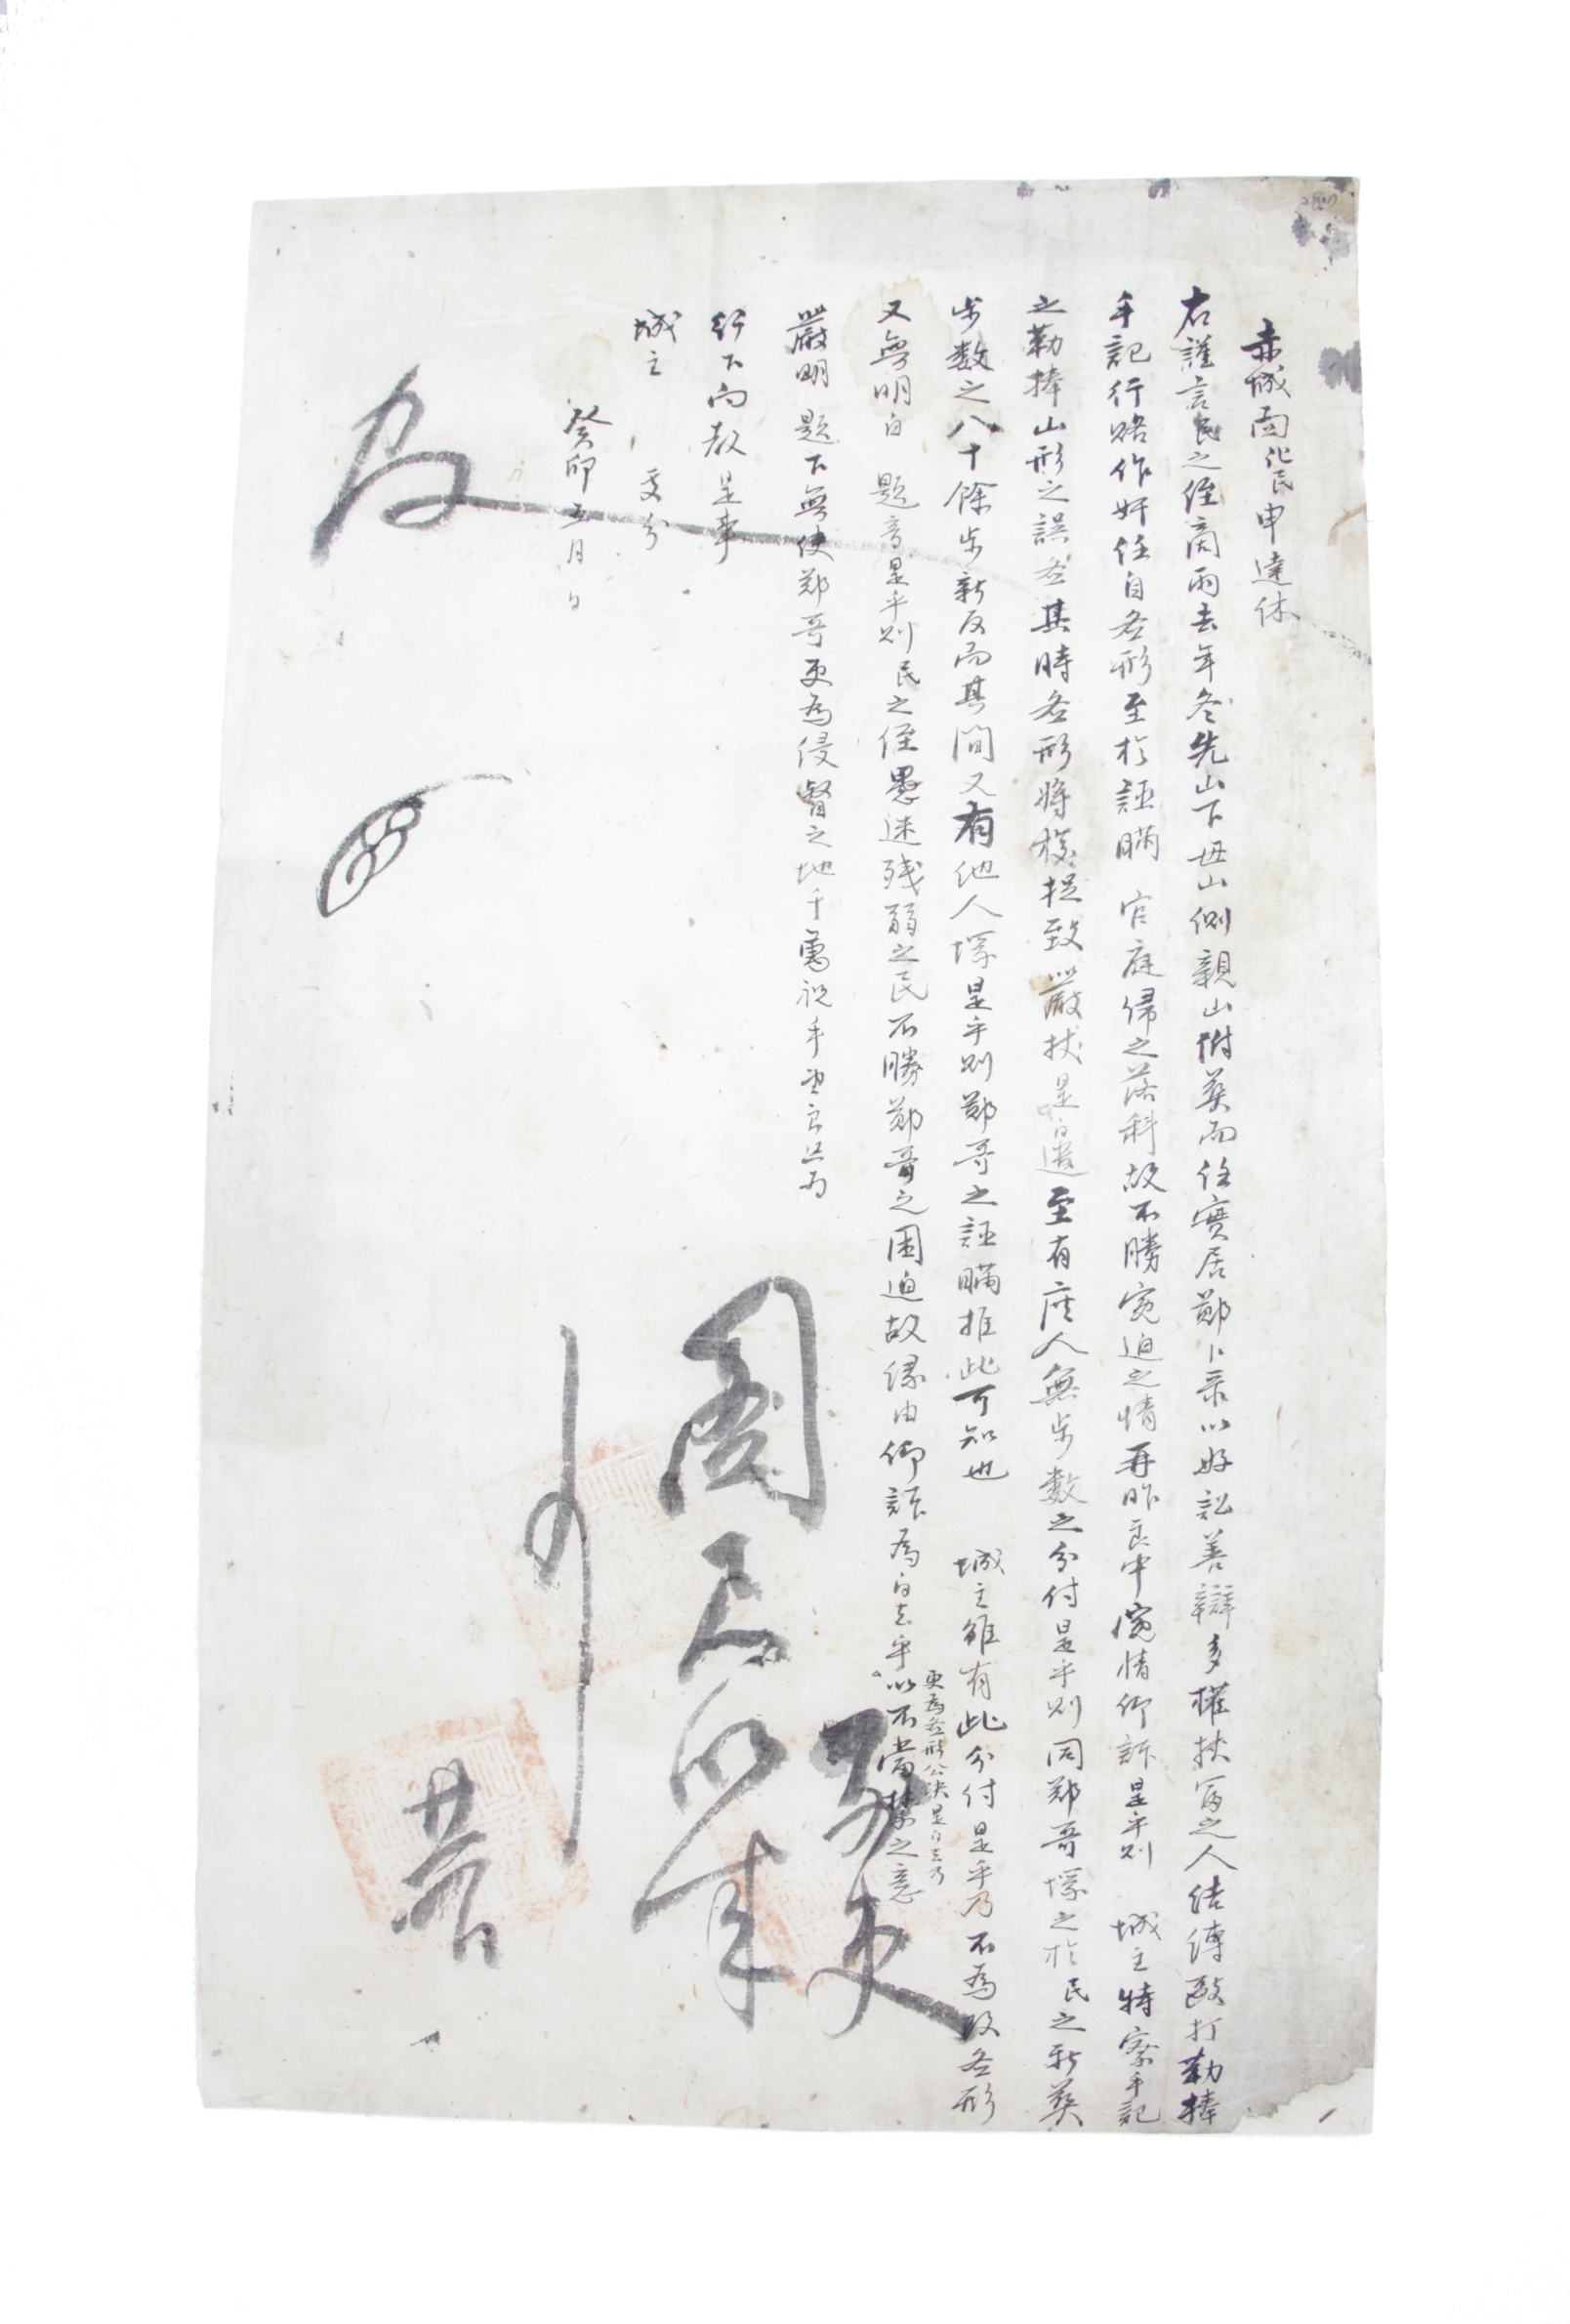 赤城面化民申達休
右謹言民之侄啇雨去年冬先山下毋山側親山附葬而任實居鄭卜彔以好訟善辯多權挾富之人結縛敺打勒捧
手記行賂作奸任自圖形至於誣瞞 官庭歸之落科故不勝寃迫之情再昨良中寃情仰訴是乎則 城主特察手記
之勒捧山形之誤啚其時啚形將校捉致嚴杖是白遣至有應人無步數之分付是乎則同鄭哥塚之於民之新葬
步數之八十餘步新反而其間又有他人塚是乎則鄭哥之誣瞞推此可知也 城主雖有此分付是乎乃不爲改啚形
更爲啚形公決是白去乃
又無明白 題音是乎則民之侄愚迷殘弱之民不勝鄭哥之困迫故緣由仰訴爲白去乎以不當禁之意
嚴明 題下無使鄭哥更爲侵督之地千萬祝手望良只爲
行下向敎是事
城主 處分
癸卯五月 日
更
圖尺以來
廿二日